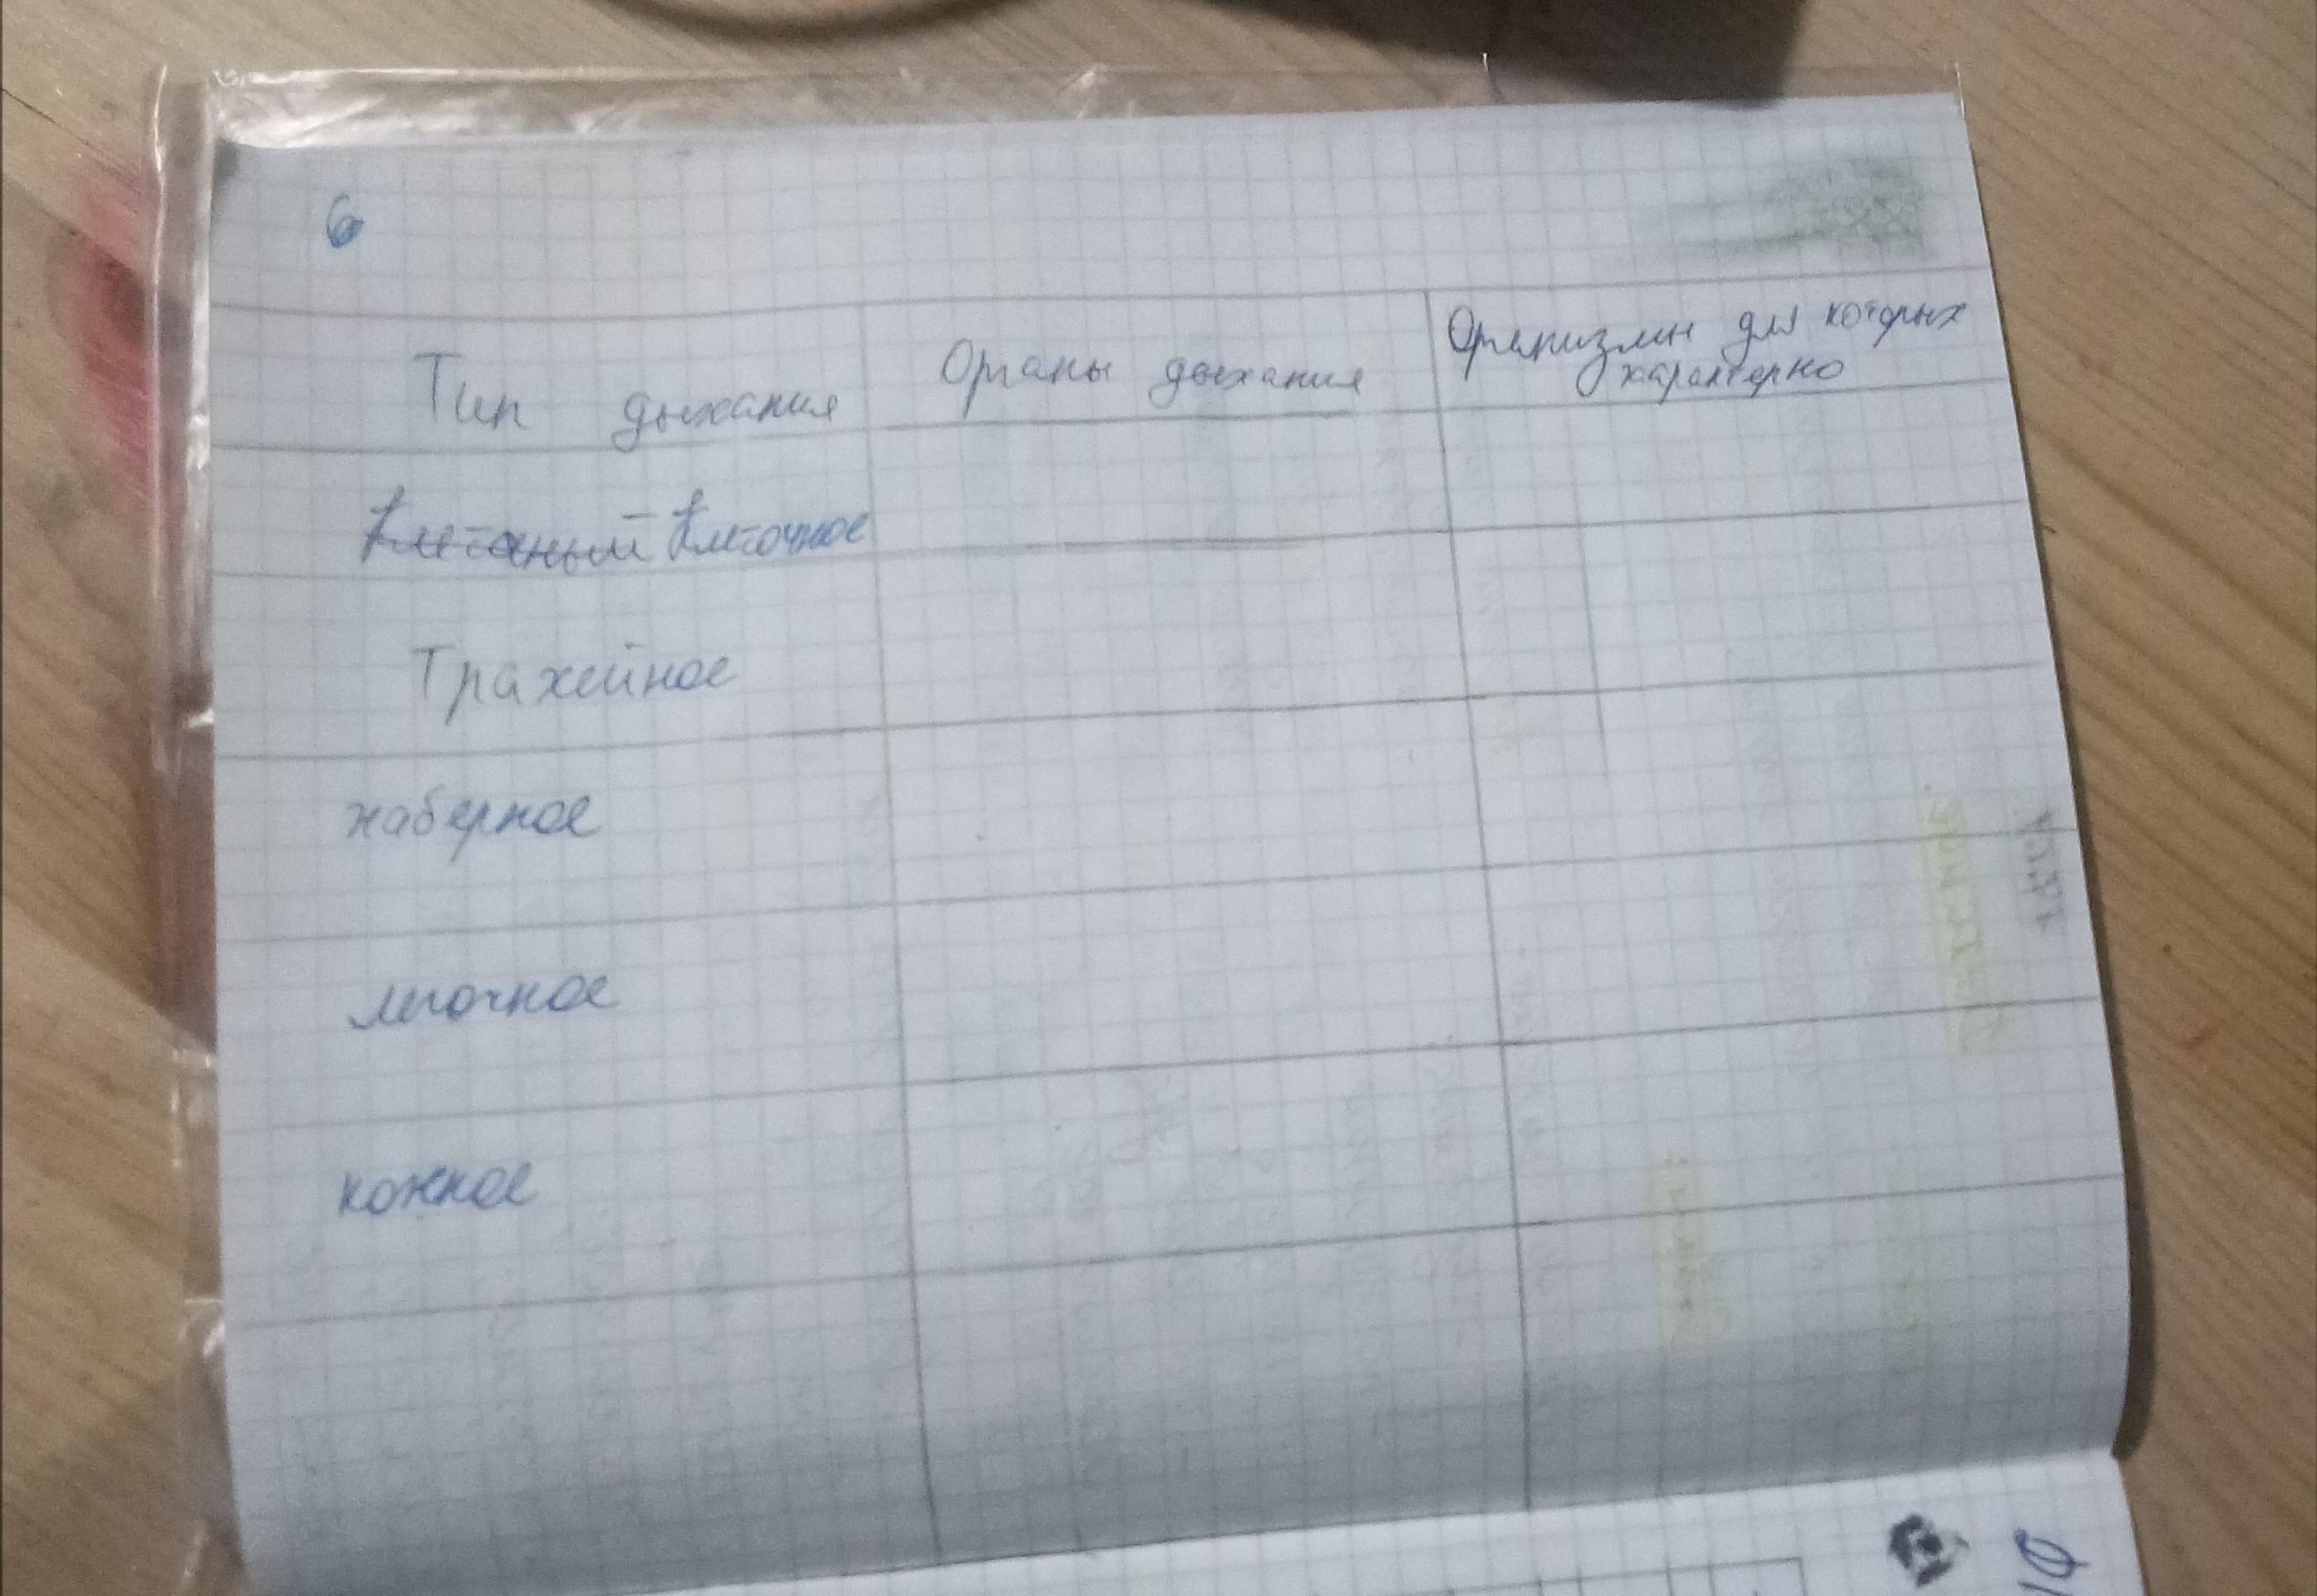 6
Тип дыхания
Органы дыхания
Организмы для которых
характерно
Клеточное
Трахейное
жаберное
легочное
кожное